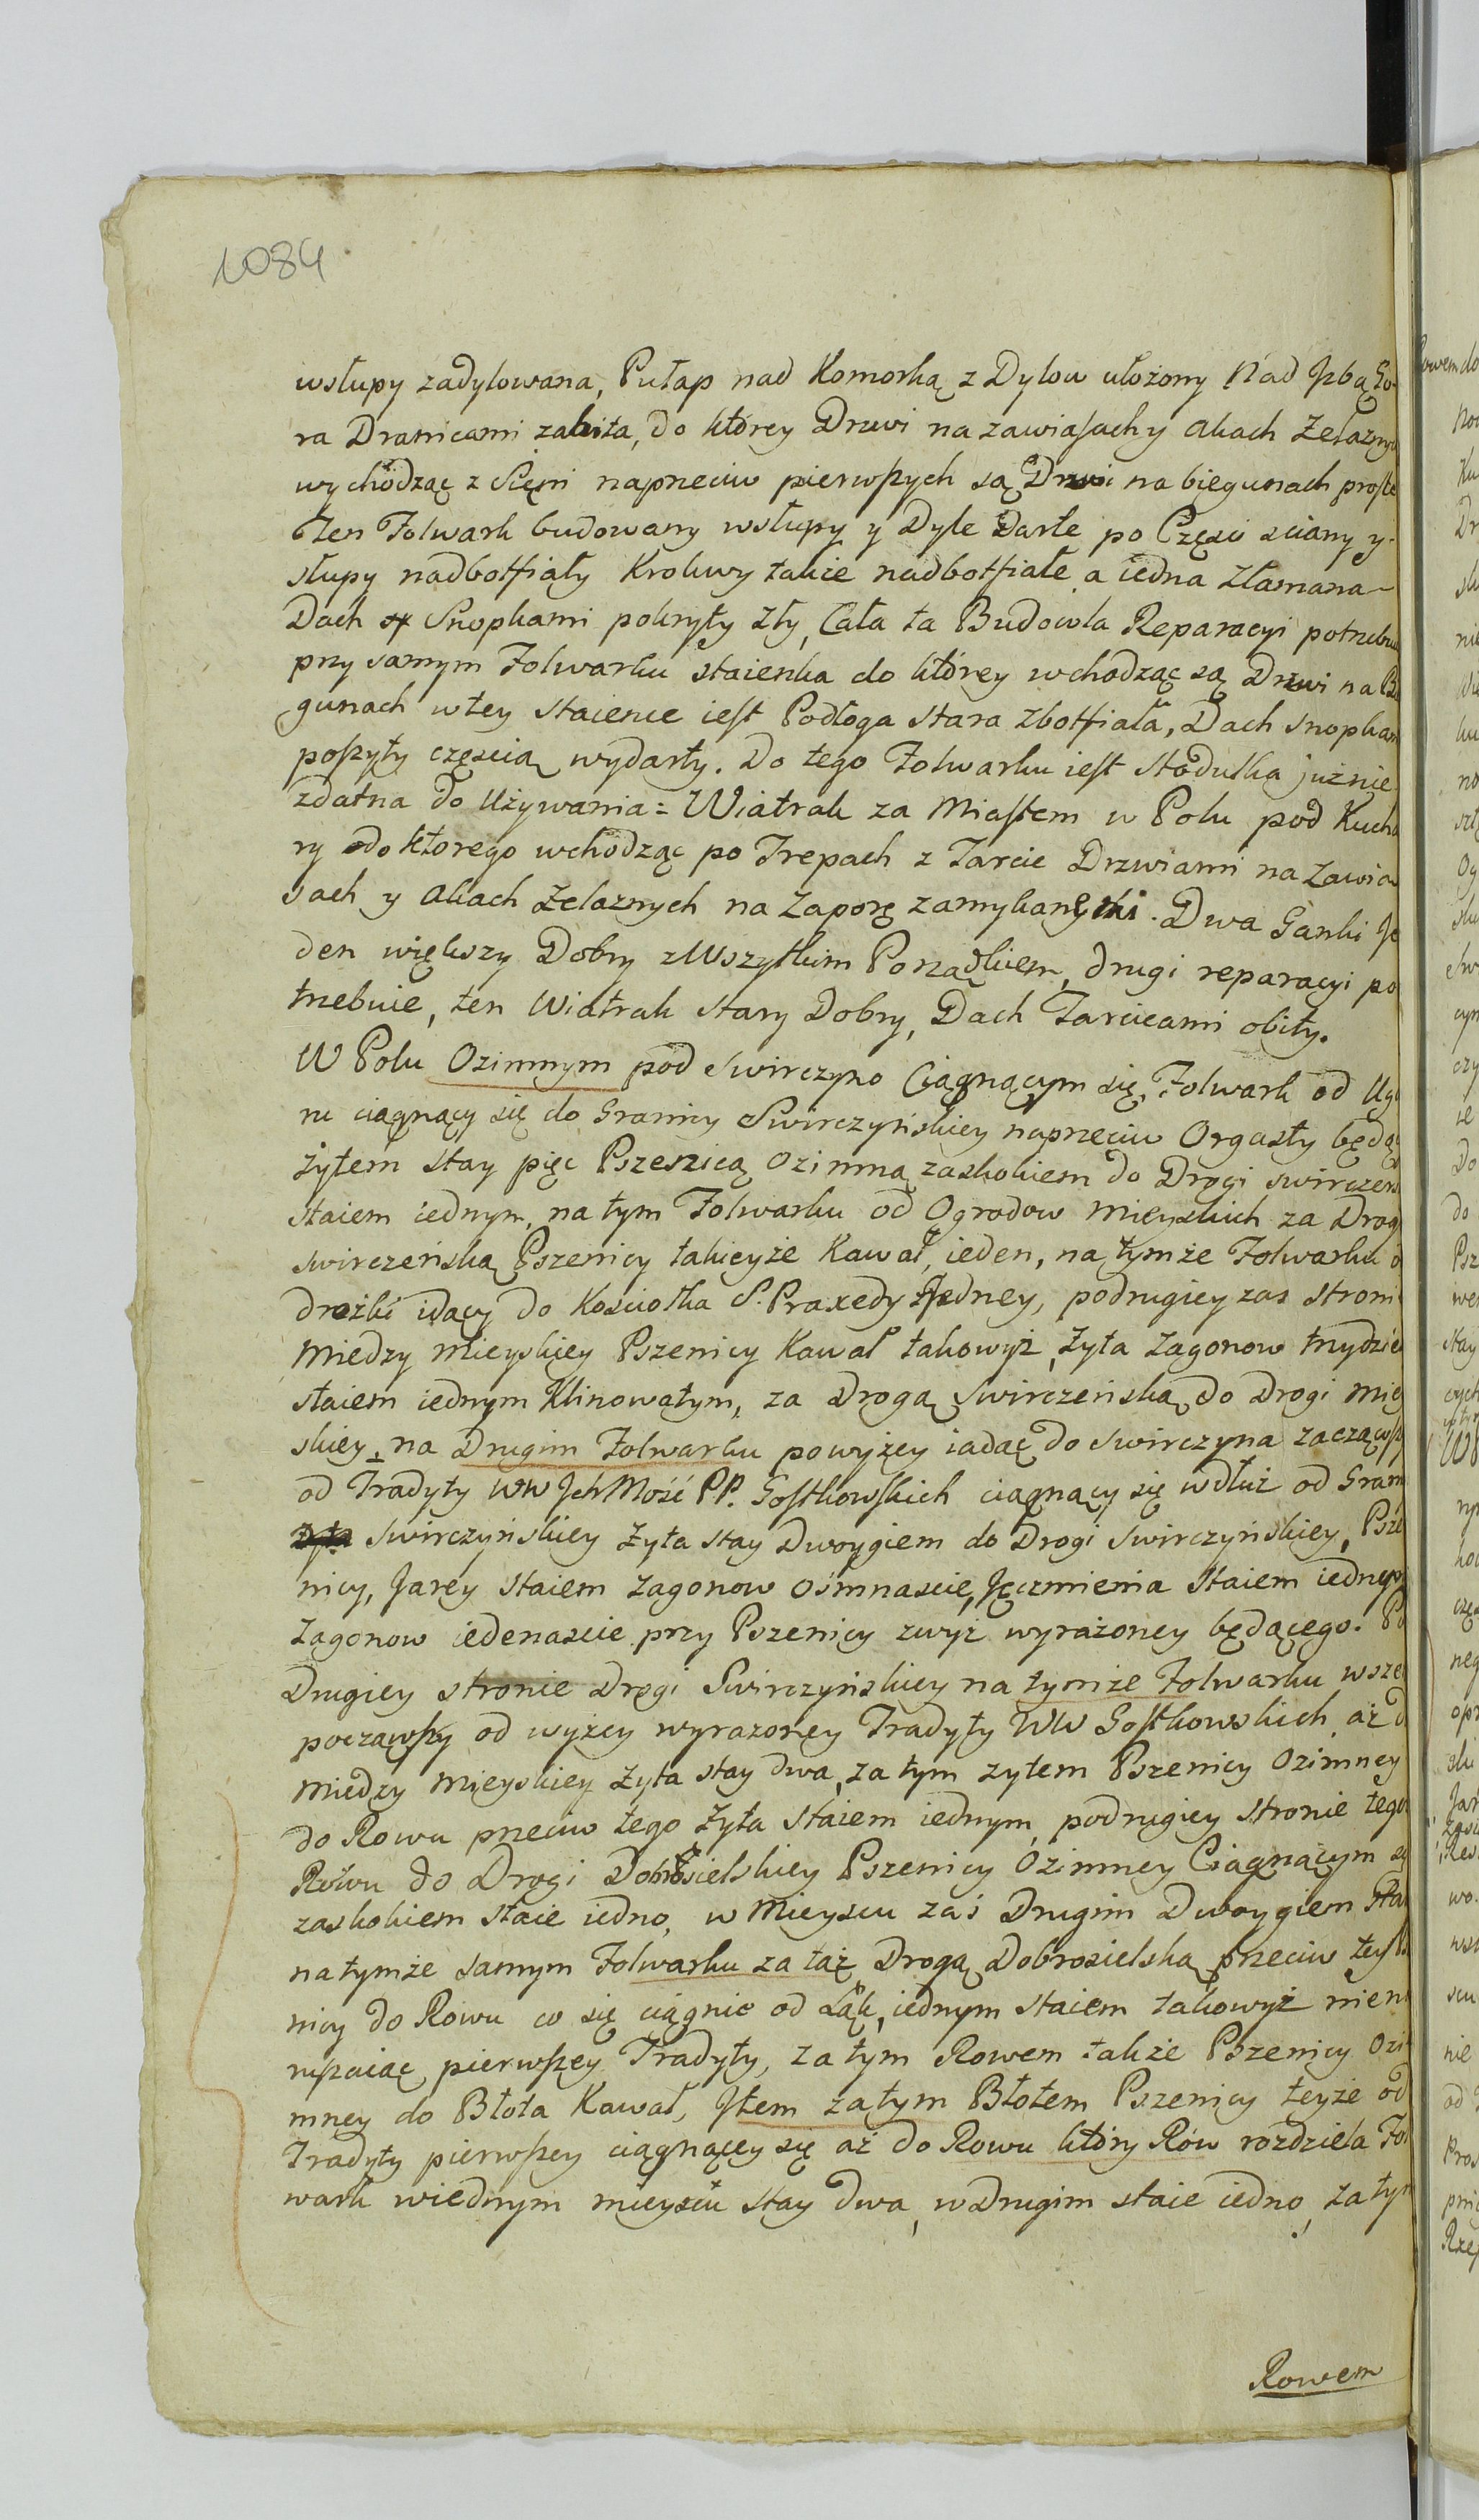 1084
wsłupy zadylowana, Pułap nad Komorką z Dylow ułożony Nad Jzbą Go-
ra Dranicami zabita, do którey Drzwi na zawiasach y akach Żelaznych
wychodząc z Sięni naprzeciw pierwszych są Drzwi na biegunach proste
Ten Folwark budowany wsłupy y Dyle Darte po Części sciany y
słupy nadbotfiały Krokwy także nadbotfiałe a iedna złamana
Dach Snopkami pokryty zły, Cała ta Budowla Reparacyi potrzebu
przy samym Folwarku staienka do którey wchodząc są Drzwi na Bie
gunach wtey staience iest Podłoga stara zbotfiała, Dach snopkam
poszyty częscią wydarty. Do tego Folwarku iest Stodułka już nie
zdatna do Używania = Wiatrak za Miastem w Polu pod Kucha
ry do ktorego wchodząc po Trepach z Tarcic Drzwiami na Zawia
sach y akach żelaznych na Zaporę zamykanymi. Dwa Ganki Je
den większy Dobry z Wszytkim Porządkiem, drugi reparacyi po
trzebuie, ten Wiatrak stary Dobry, Dach Tarcicami obity.
W Polu Ozimnym pod Swirczyno Ciągnącym się, Folwark od Ugo
ru ciągnący się do Granicy Swirczyńskiey naprzeciw Orgasty będą
żytem stay pięc Pszenicą ozimną zaskokiem do Drogi swirczens
staiem iednym, na tym Folwarku od Ogrodow Mieyskich za Drog
swirczeńską Pszenicy takieyże Kawał, ieden, na tymże Folwarku o
drożki idący do Kosciołka S. Praxedy Jedney, podrugiey zas stroni
Miedzy Mieyskiey Pszenicy Kawał takowyż, żyta zagonow trzydzie
staiem iednym Klinowatym, za Drogą Swirczeńską do Drogi Miey
skiey, na Drugim Folwarku powyżey iadąc do Swirczyna zacząwsz
od Tradyty WW Jch Mość PP. Gostkowskich ciągnący się wdłuż od Gran
Swirczyńskiey żyta stay Dwoygiem do Drogi Swirczyńskiey, Psze
nicy, Jarey staiem zagonow ośmnascie, Jęczmienia staiem iednym
zagonow iedenascie przy Pszenicy zwyż wyrażoney będącego. Po
Drugiey stronie Drogi Swirczyńskiey na tymże Folwarku wsze
począwszy od wyżey wyrazoney Tradyty WW Gostkowskich aż d
Miedzy Mieyskiey żyta stay dwa, za tym zytem Pszenicy Ozimney
do Rowu przeciw tego żyta staiem iednym, podrugiey stronie tego
Rowu do Drogi Dobrosielskiey Pszenicy Ozimney Ciągnącym się
zaskokiem staie iedno, w Mieyscu zaś Drugim Dwoygiem Sta
na tymże samym Folwarku za taż Drogą Dobrosielską przeciw tey
nicy do Rowu co się ciągnie od Łąk, iednym staiem takowyż nien
ruszaiąc pierwszey Tradyty, za tym Rowem także Pszenicy Ozi
mney do Błota Kawał, Jtem za tym Błotem Pszenicy teyże od
Tradyty pierwszey ciągnącey się aż do Rowu który Rów rozdziela Fol
wark wiednym mieyscu stay dwa, wdrugim staie iedno, za tym
Rowem